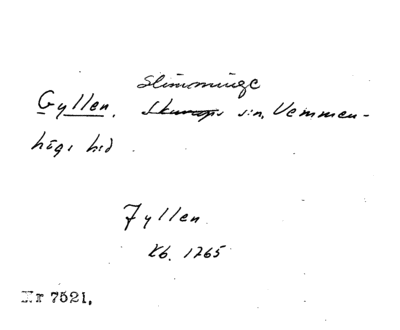 Slimminge
Gyllen, Skurups s:n, Vemmen-
högs hd.
Jyllen
Kb. 1765
Nr 7521.